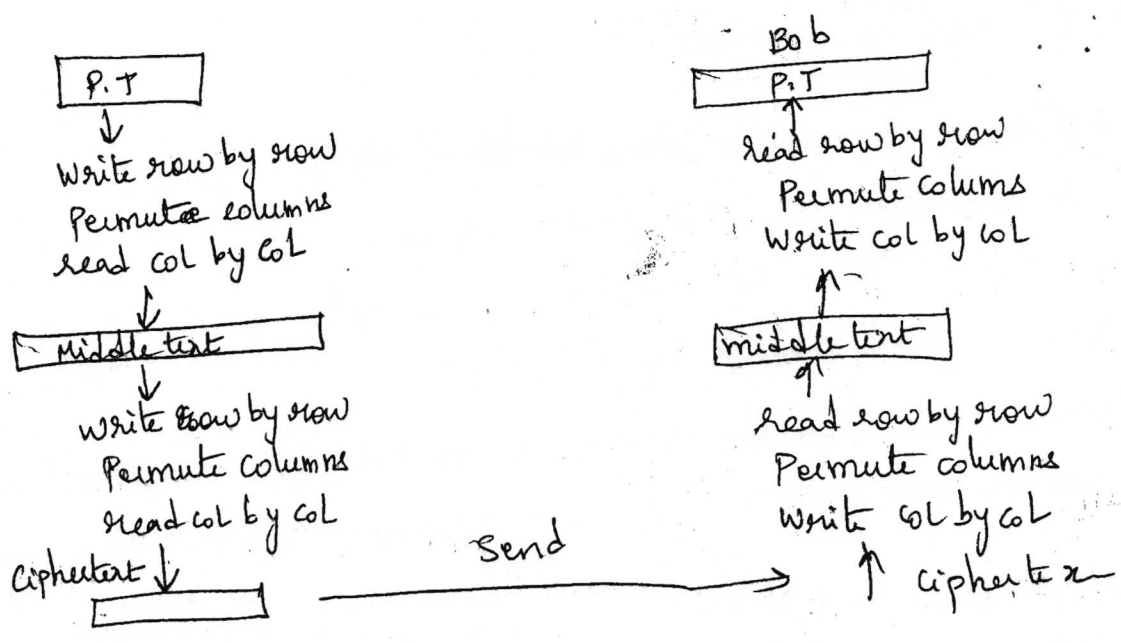 P.T
Write row by row
Permute columns
read col by col
Middle text
write row by row
Permute columns
read col by col
Ciphertext
Send
Bob
P.T
read row by row
Permute colums
Write col by col
middle text
read row by row
Permute columns
Write col by col